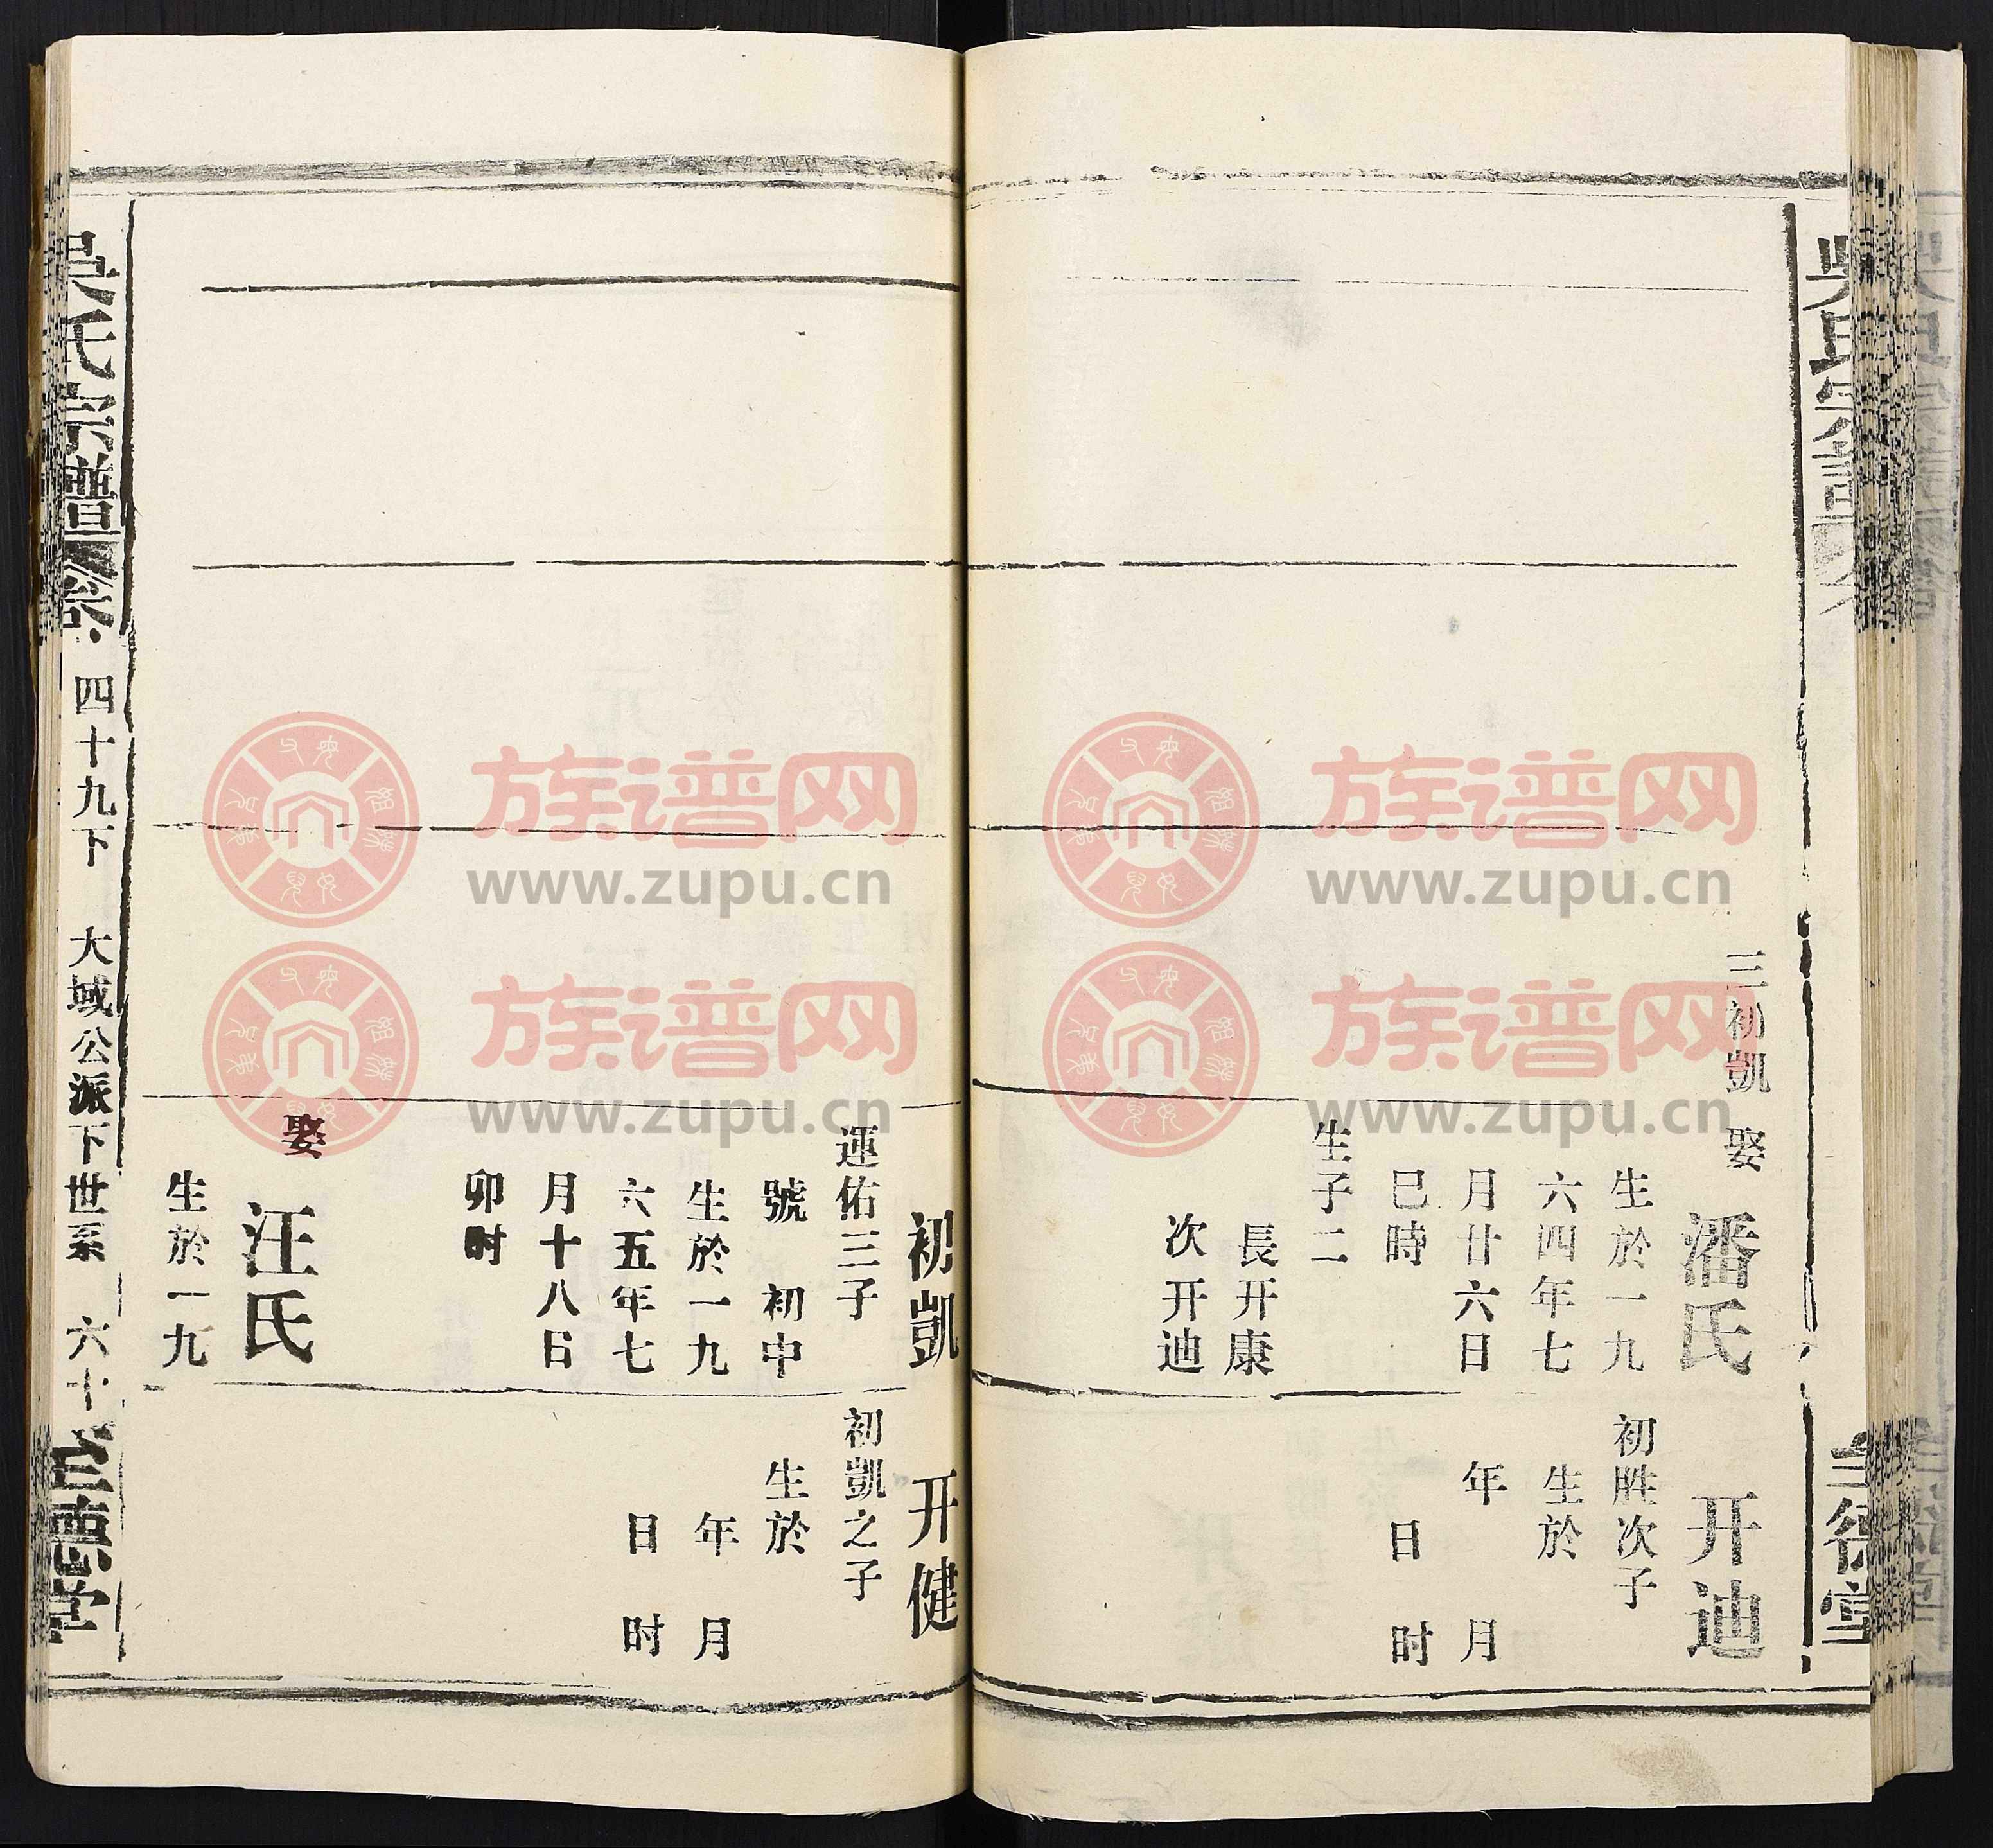 吴氏宗譜
三初凱
娶
潘氏
生於一九
六四年七
月廿六日
巳時
生子二
長开康
次开迪
开迪
初胜次子
生於
年 月
日 时
三德堂
初凱
運佑三子
號 初中
生於一九
六五年七
月十八日
卯时
娶
汪氏
生於一九
开健
初凱之子
生於
年 月
日 时
吴氏宗譜 卷 四十九下 大域公派下世系 六十 三德堂
族谱网
www.zupu.cn
族谱网
www.zupu.cn
族谱网
www.zupu.cn
族谱网
www.zupu.cn